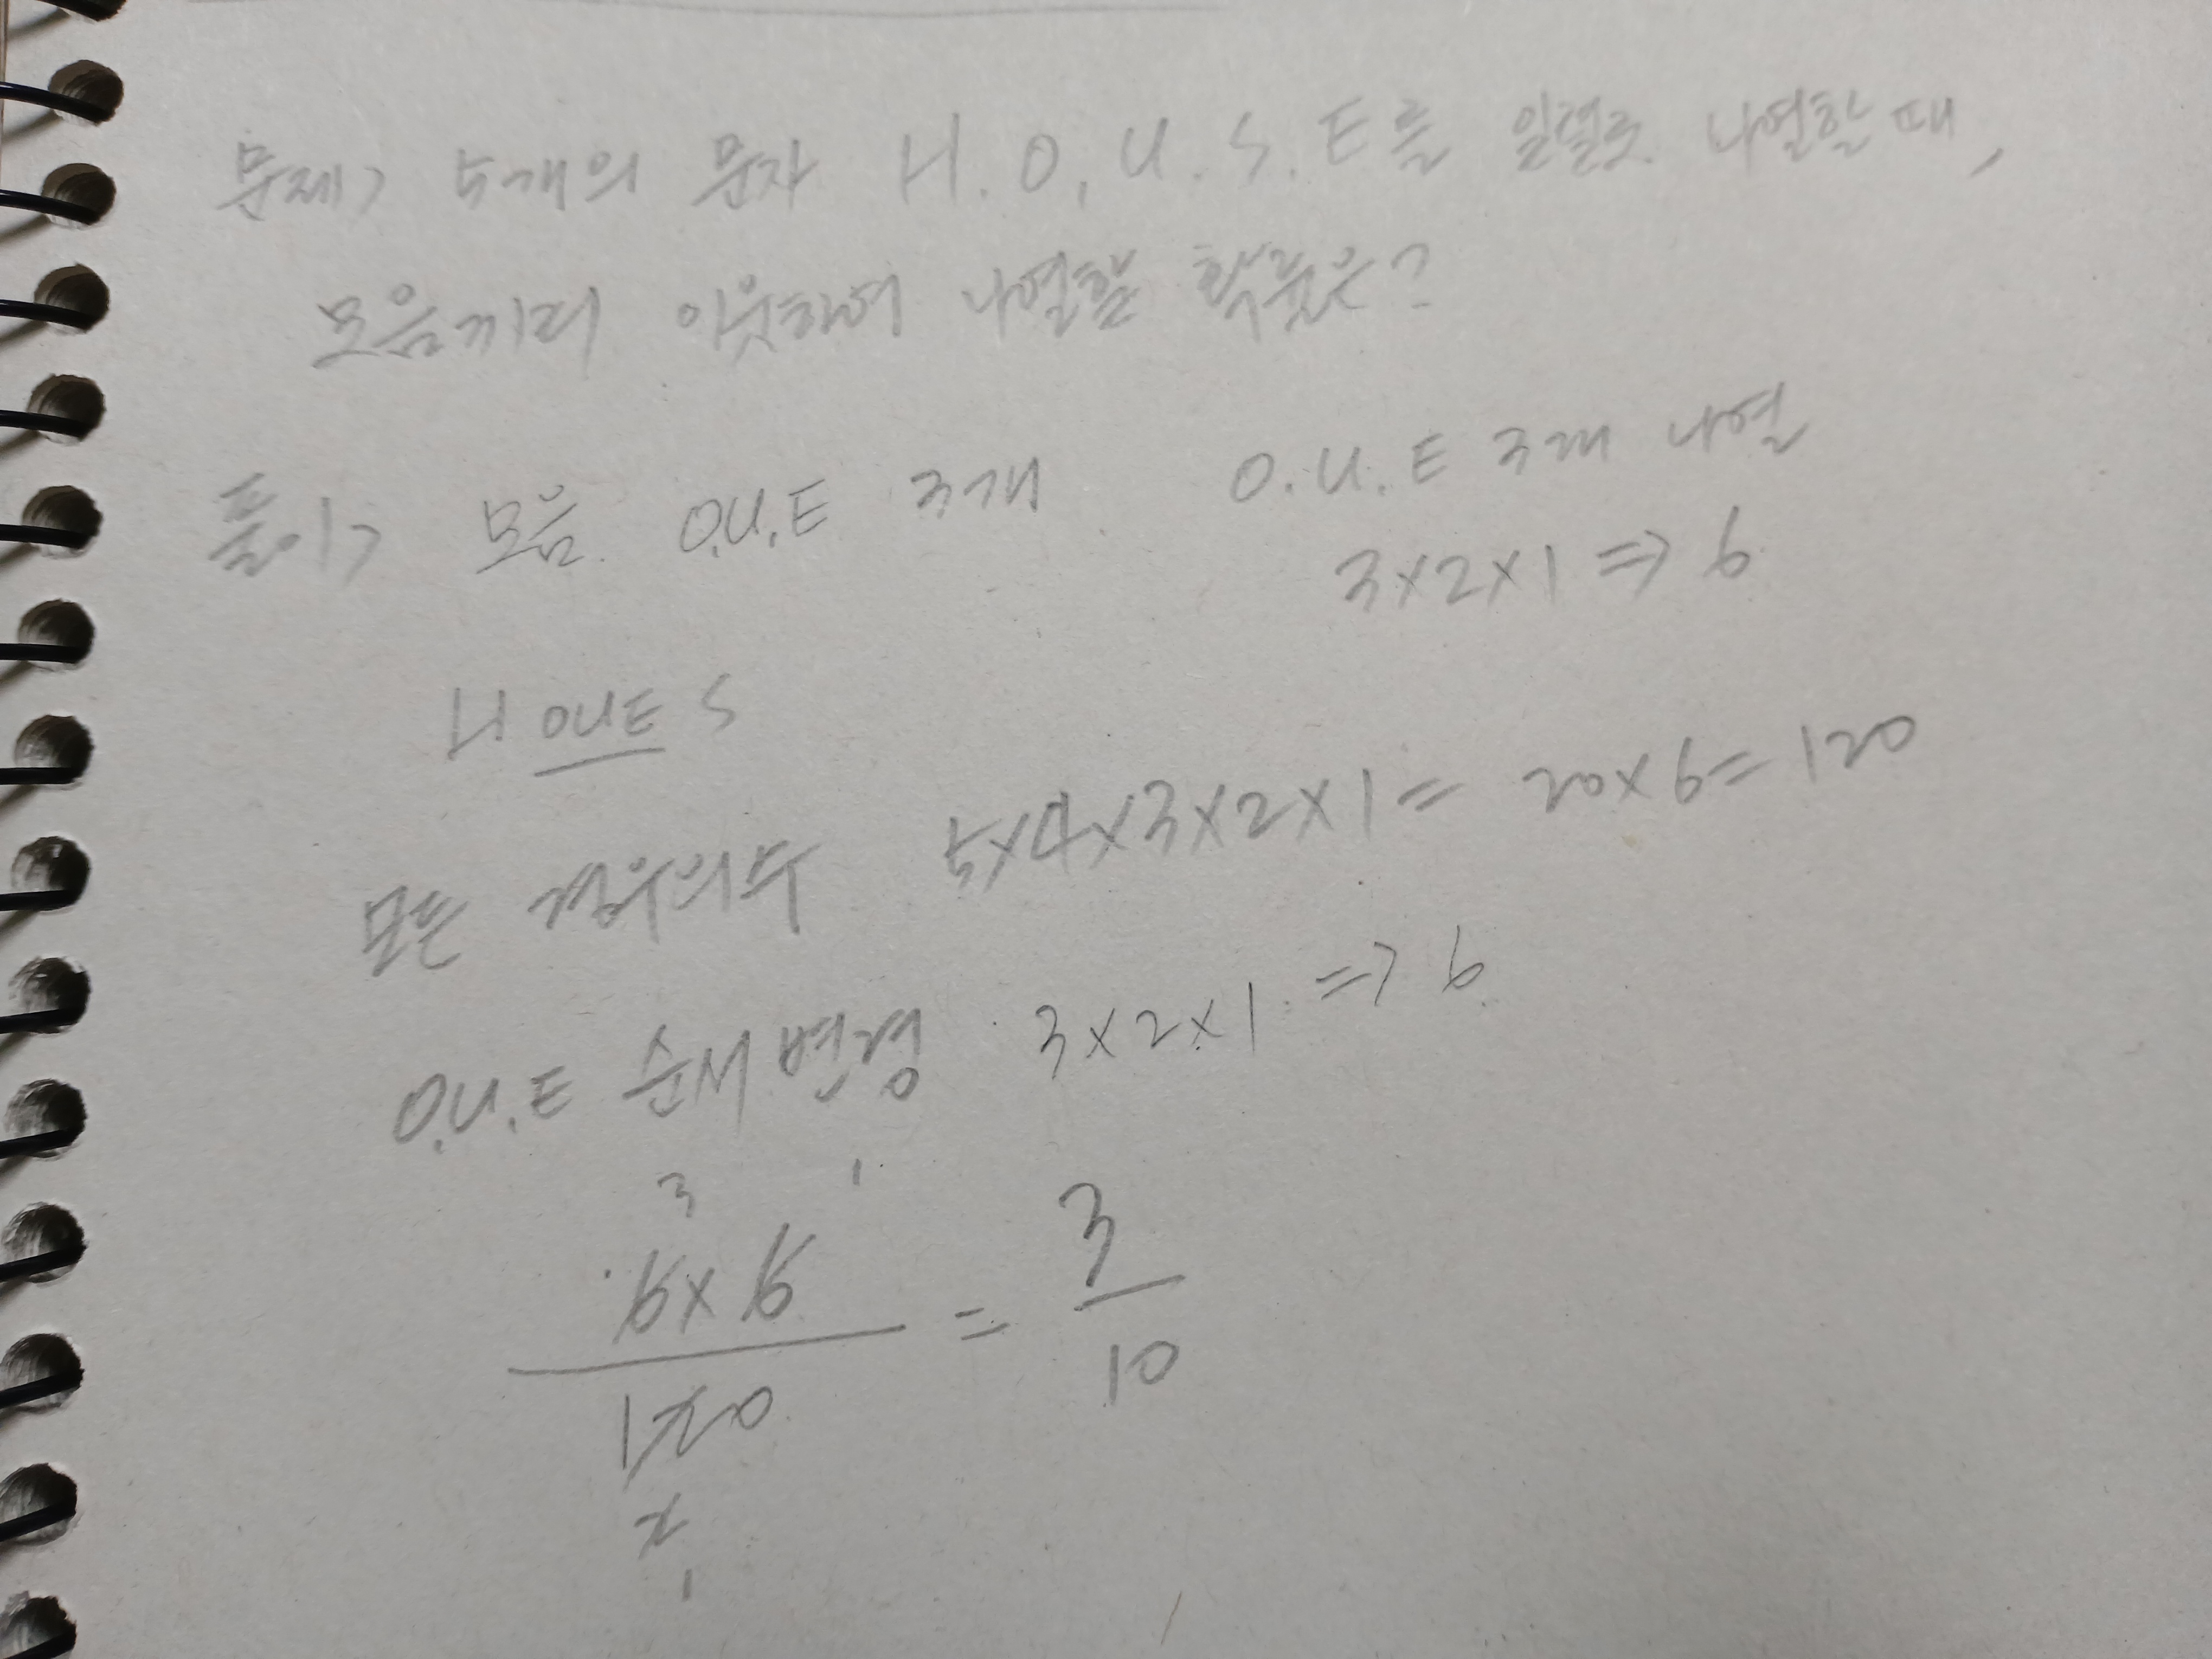 문제> 5개의 문자 H. O, U. S. E를 일렬로 나열할 때,
모음끼리 이웃하여 나열할 확률은?
풀이> 모음. O.U.E 3개 O.U.E 3개 나열
3×2×1 => 6
H OUE S
모든 경우의수 5×4×3×2×1= 20×6=120
O.U.E 순서변경 3×2×1 => 6
3 1
6×6
120
2
1
= 3
10